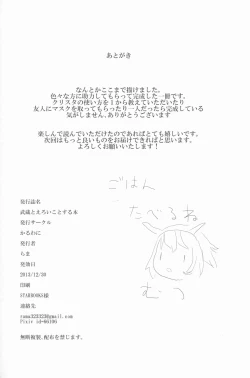 あとがき
なんとかここまで描けました。
色々な方に助力してもらって完成した一冊です。
クリスタの使い方を1から教えていただいたり
友人にマスクを取ってもらったり一人だったら完成している
気がしません、ありがとうございます
楽しんで読んでいただけたのであればとても嬉しいです。
次回はもっと良いものをお届けできればと思います。
よろしくお願いいたします!
ごはん
たべるね
むつ
発行誌名
武蔵とえろいことする本
発行サークル
かるわに
発行者
らま
発効日
2013/12/30
印刷
STARBOOKS様
連絡先
無断複製、配布を禁じます。